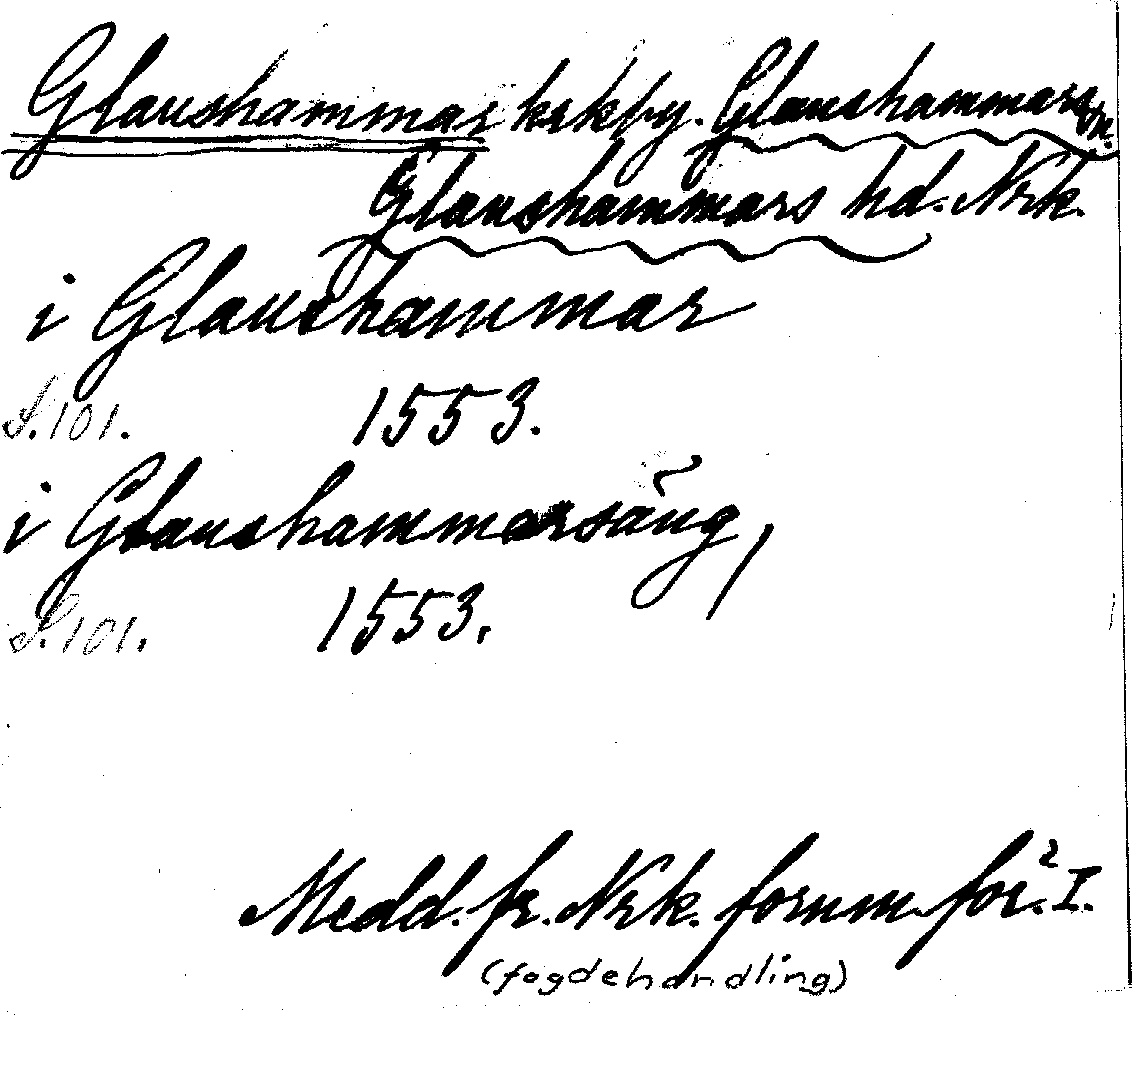 Glanshammar krkby. Glanshammars sn.
Glanshammars hd. Nrk.
i Glanshammar
S. 101. 1553.
i Glanshammarsäng,
S. 101. 1553.
Medd. fr. Nrk. fornm. för. I.
(fogdehandling)